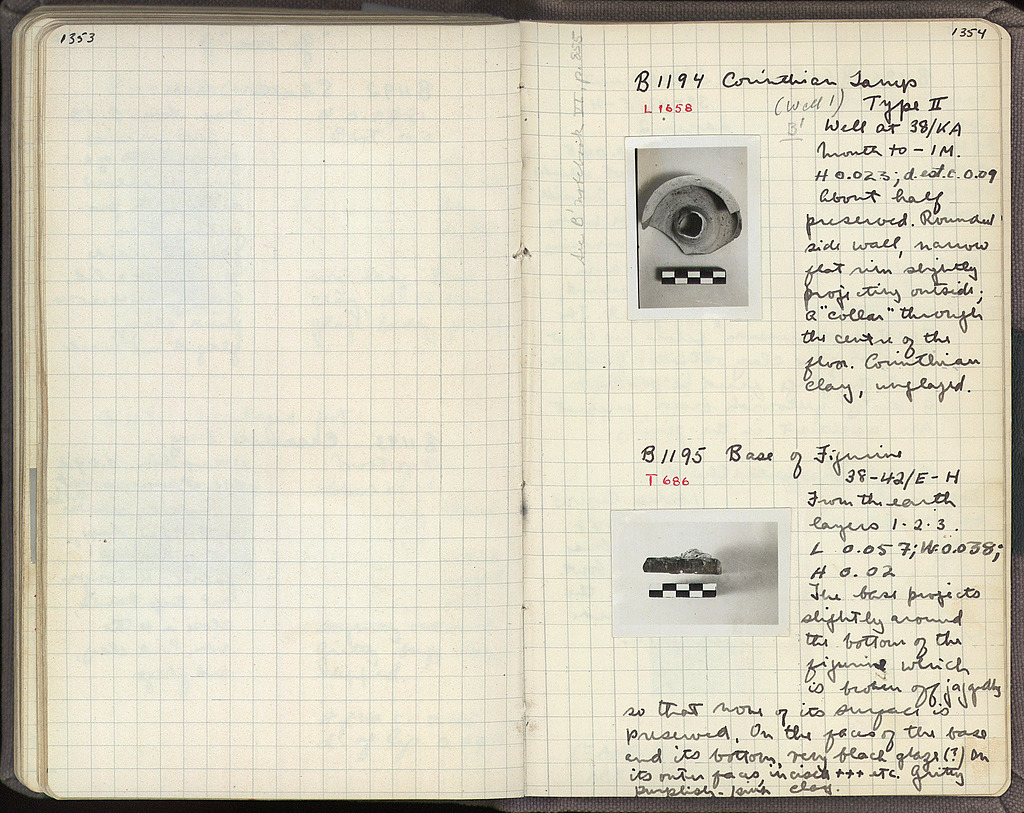 1353
1354
See B' notebook VII, p. 855
B 1194 Corinthian Lamp
L 1658
(Well 1) Type II
B' Well at 38/KA
mouth to -1M.
H 0.023; d.est.c. 0.09
About half
preserved. Rounded
side wall, narrow
flat rim slightly
projecting outside;
a "collar" through
the centre of the
floor. Corinthian
clay, unglazed.
B 1195 Base of Figurine
T 686
38-42/E-H
From the earth
layers 1-2-3.
L 0.057; W. 0.038;
H 0.02
The base projects
slightly around
the bottom of the
figurine which
is broken off jaggedly
so that none of its surface is
preserved. On the faces of the base
and its bottom, very black glaze (?) On
its outer faces, incised +++ etc. Gritty
purplish-pink clay.